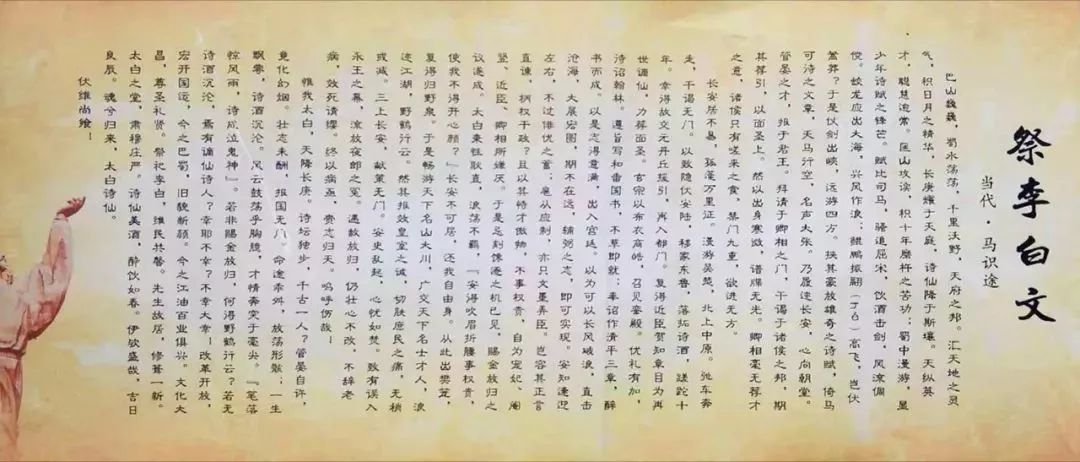 祭李白文
当代·马识途
巴山巍巍，蜀水荡荡，千里沃野，天府之邦。汇天地之灵
气，积日月之精华，长庚耀于天庭，诗仙降于斯壤。天纵英
才，聪慧逾常。匡山攻读，积十年磨杵之苦功；蜀中漫游，显
少年诗赋之锋芒。赋比司马，骚追屈宋，饮酒击剑，风流倜
傥。蛟龙应出大海，兴风作浪；鲲鹏振翮（hé）高飞，岂伏
蒿莽？于是仗剑出峡，远游四方。挟其豪放雄奇之诗赋，倚马
可待之文章，天马行空，名声大张。乃屡进长安，心向朝堂。
管晏之才，报于君王。拜请于卿相之门，干谒于诸侯之邦，期
其荐引，以面圣上。然以出身寒微，谱牒无先。卿相毫无荐才
之意，诸侯只有嗟来之食，禁门九重，欲进无方。
长安居不易，孤蓬万里征。漫游吴楚，北上中原。弛车奔
走，干谒无门。以致隐伏安陆，移家东鲁，落拓诗酒，蹉跎十
年。幸得故交元丹丘援引，再入都门。复得近臣贺知章目为再
世谪仙，力荐面圣。玄宗以布衣高皓，召见宴殿。优礼有加，
待诏翰林。遵旨写和番国书，不草即就；奉诏作清平三章，醉
书而成。以是志得意满，出入宫廷。以为可以长风破浪，直击
沧海，大展宏图，期不在远，辅弼之志，即可实现。安知逢迎
左右，不过俳优之畜；扈从应制，亦只文墨弄臣。岂容其正言
直谏，柄权干政？且以其恃才傲物，不事权贵，自为宠妃、阉
竖、近臣、卿相所嫌厌。于是忌刻馋逐之机已见，赐金放归之
议遂成。太白秉性耿直，浪荡不羁，『安得吹眉折腰事权贵，
使我不得开心颜？』长安不可居，还我自由身。从此出樊笼，
复得归野泉。于是畅游天下名山大川，广交天下名士才人，浪
迹江湖，野鹤行云。然其报效皇室之诚，切肤庶民之痛，无稍
或减。三上长安，献策无门。安史乱起，心忧如焚。致有误入
永王之幕，流放夜郎之冤。遇赦放归，仍壮心不改，不辞老
病，效死请缨。终以病亟，赍志归天。呜呼伤哉！
惟我太白，天降长庚。诗坛独步，千古一人？管晏自许，
竟化幻烟。壮志未酬，报国无门。命途乖舛，放荡形骸；一生
飘零，诗酒沉沦。风云鼓荡乎胸臆，才情奔突于毫尖。『笔落
惊风雨，诗成泣鬼神』。若非赐金放归，何得野鹤行云？若无
诗酒沉沦，焉有谪仙诗人？幸耶不幸？不幸大幸！改革开放，
宏开国运，今之巴蜀，旧貌新颜。今之江油百业俱兴。文化大
昌，尊圣礼贤。祭祀李白，维民共馨。先生故居，修葺一新。
太白之堂，肃穆庄严。诗仙美酒，醉饮如春。伊欤盛哉，吉日
良辰。魂兮归来，太白诗仙。
伏维尚飨！